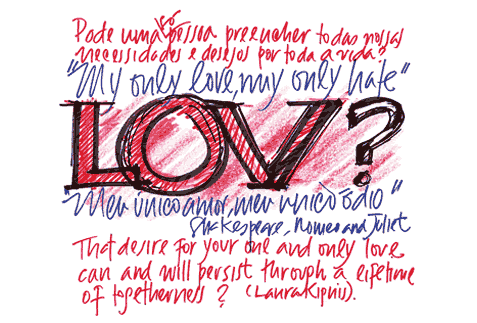 Pode uma só pessoa preencher todas nossas
necessidades e desejos por toda a vida?
"My only love, my only hate"
LOV?
"Meu único amor, meu único ódio"
Shakespeare, Romeo and Juliet
That desire for your one and only love
can and will persist through a lifetime
of togetherness? (Laura Kipnis).